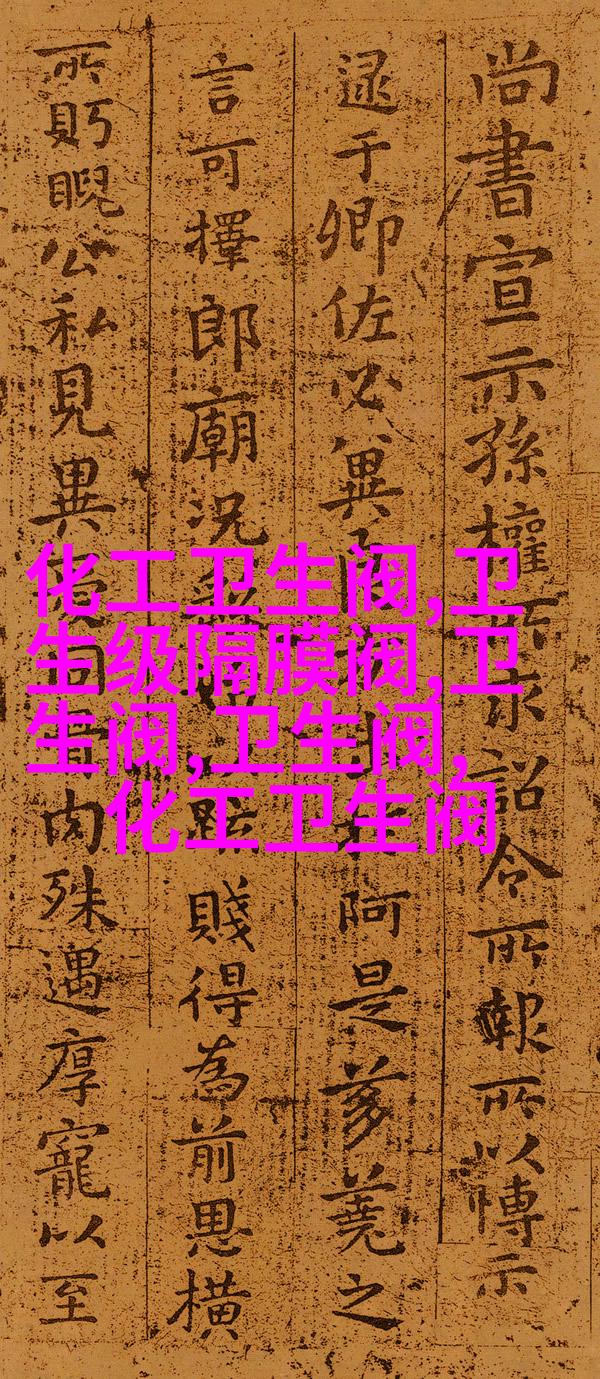 尚書宣示孫權所求詔令所報所以博示
逮于卿佐必冀阿是芻蕘之
言可擇郎廟況賤得為前恩橫
所眄睨公私見異同骨肉殊遇厚寵以至
化工卫生阀,卫
生级隔膜阀,卫
生阀,卫生阀,
化工卫生阀